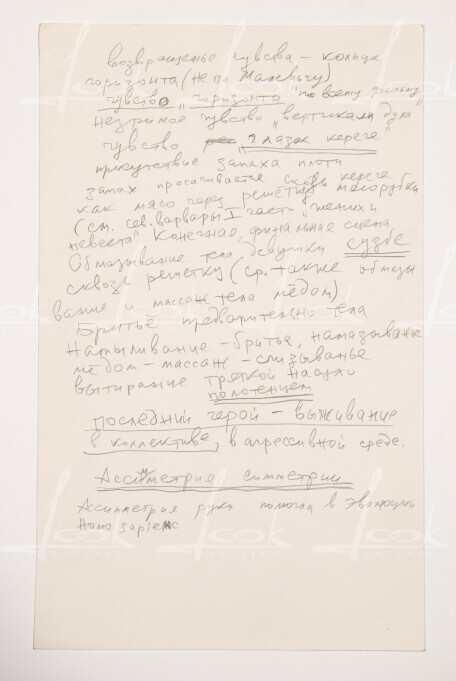 возвращенье чувства – кольца
горизонта (не по Малевичу)
чувство "горизонта" по всему фильму
незримое чувство "вертикали духа"
чувство "глазок кереге"
присутствие запаха плоти
запах просачивается сквозь кереге
как мясо через решётку мясорубки
(см. сев. варвары I части "жених и
невеста" Конечная финальная сцена
Обмазывание тела девушки сузбе
сквозь решетку (ср. также обмазы
вание и массаж тела мёдом)
Бритьё предварительно тела
Намыливание – бритье, намазыванье
мёдом – массаж – слизыванье
вытирание тряпкой насухо
полотенцем
последний герой – выживание
в коллективе, в агрессивной среде.
Ассиметрия симметрии
Ассимметрия рука помогла в Эволюции
Homo sapienс
look